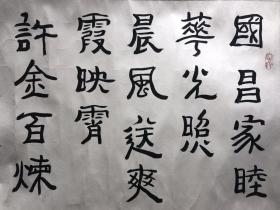 國昌家睦
華光照
晨風送爽
霞映霄
許金百煉